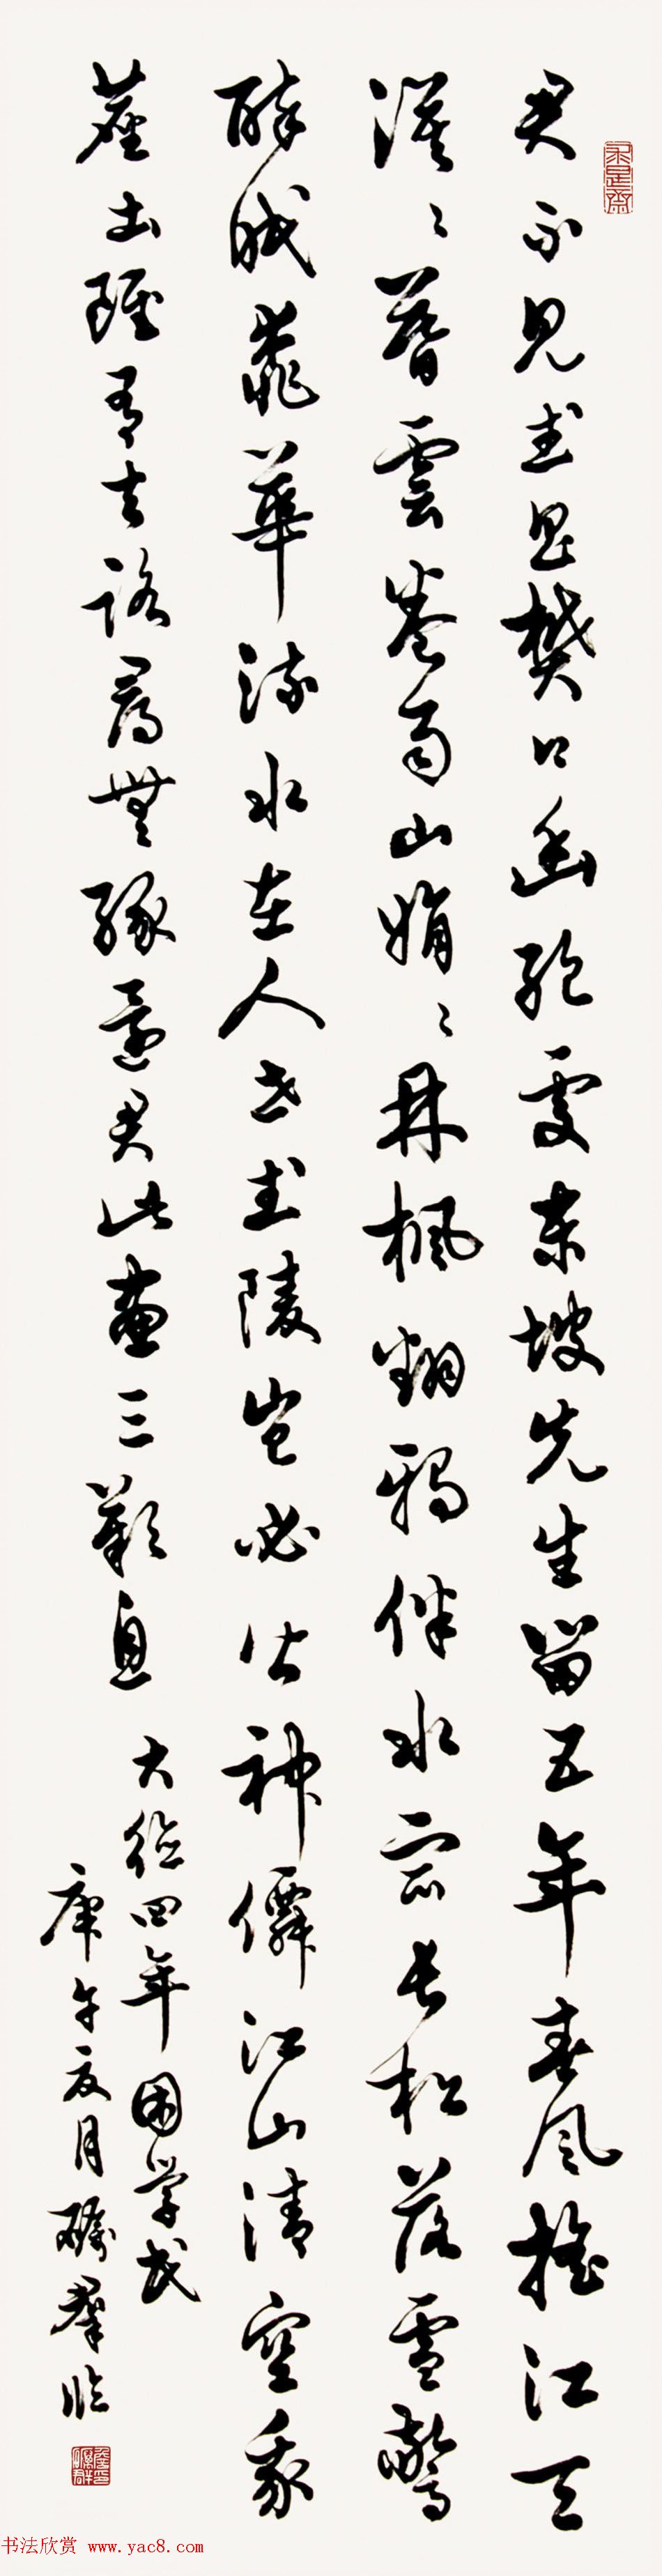 求是齋
君不見武昌樊口幽絕處東坡先生留五年春風搖江天
漠〻暮雲卷雨山娟〻丹楓翻鴉伴水宿長松落雪驚
醉眠桃華流水在人世武陵豈必皆神僊江山清空我
塵土雖有去路尋無緣還君此畫三歎息
大德四年困学民
庚午夏月礪羣臨
书法欣赏 www.yac8.com